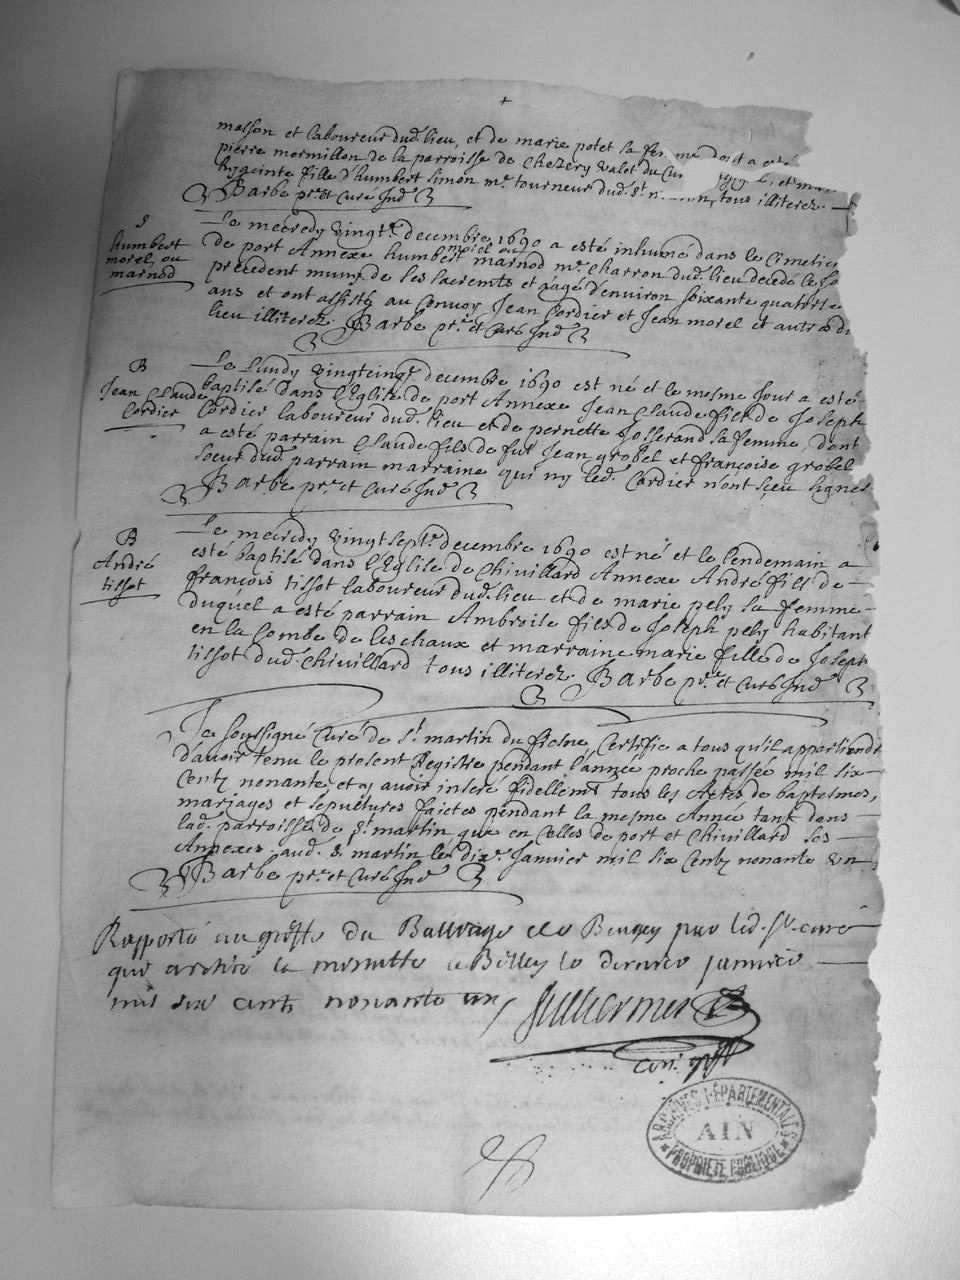 +
masson et laboureur dud. lieu, et de marie potet sa femme dont a esté
pierre mermillon de la parroisse de Chezery valet du Cu
hyginte fille d'humbert simon me. tourneur dud. St. tous illiterez
Barbe ptre. et Curé Ind
S
humbert
morel, ou
marnod
Le mecredy vingte. decembre 1690 a esté inhumé dans le Cimetier
de port Annexe humbert morel ou marnod me. Charron dud. lieu decedé le jo
precedent muny de ses sacremts et agé d'environ soixante quatorze
ans et ont assisté au Convoy Jean Cordier et Jean morel et autres du
lieu illiterez. Barbe ptre. et Curé Ind
B
Jean Claude
Cordier
Le Lundy vingtcinqe decembre 1690 est né et le mesme jour a esté
baptisé dans l'Eglise de port Annexe Jean Claude fils de Joseph
Cordier laboureur dud. lieu et de pernette Josserand sa femme, dont
a esté parrain Claude fils de fut Jean grobel et françoise grobel
soeur dud. parrain marraine qui ny led. Cordier n'ont sceu signer
Barbe ptre. et Curé Ind
B
André
tissot
Le mecredy vingtsepte. decembre 1690 est né et le lendemain a
esté baptisé dans l'Eglise de Chivillard Annexe André fils de
françois tissot laboureur dud. lieu et de marie pely sa femme
duquel a esté parrain Ambroise fils de Joseph pely habitant
en la Combe de leschaux et marraine marie fille de Joseph
tissot dud. Chivillard tous illiterez. Barbe ptre. et Curé Ind
Je soussigné Curé de St. martin du fresne, Certifie a tous qu'il appartiendr
d'avoir tenu le present Registre pendant l'année proche passée mil six
Centz nonante, et y avoir inseré fidellemt tous les Actes de baptesmes,
mariages et sepultures faictes pendant la mesme Année tant dans
lad. parroisse de St. martin que en Celles de port et Chivillard ses
Annexes. aud. S. martin le dixe. Janvier mil six Centz nonante un
Barbe ptre. et Curé Ind
Rapporté au greffe du Bailliage de Bugey par led. Sr. curé
que la minutte a Belley le janvier
mil six cents nonante un
Guillermier
ARCHIVES DÉPARTEMENTALES
AIN
PROPRIÉTÉ PUBLIQUE